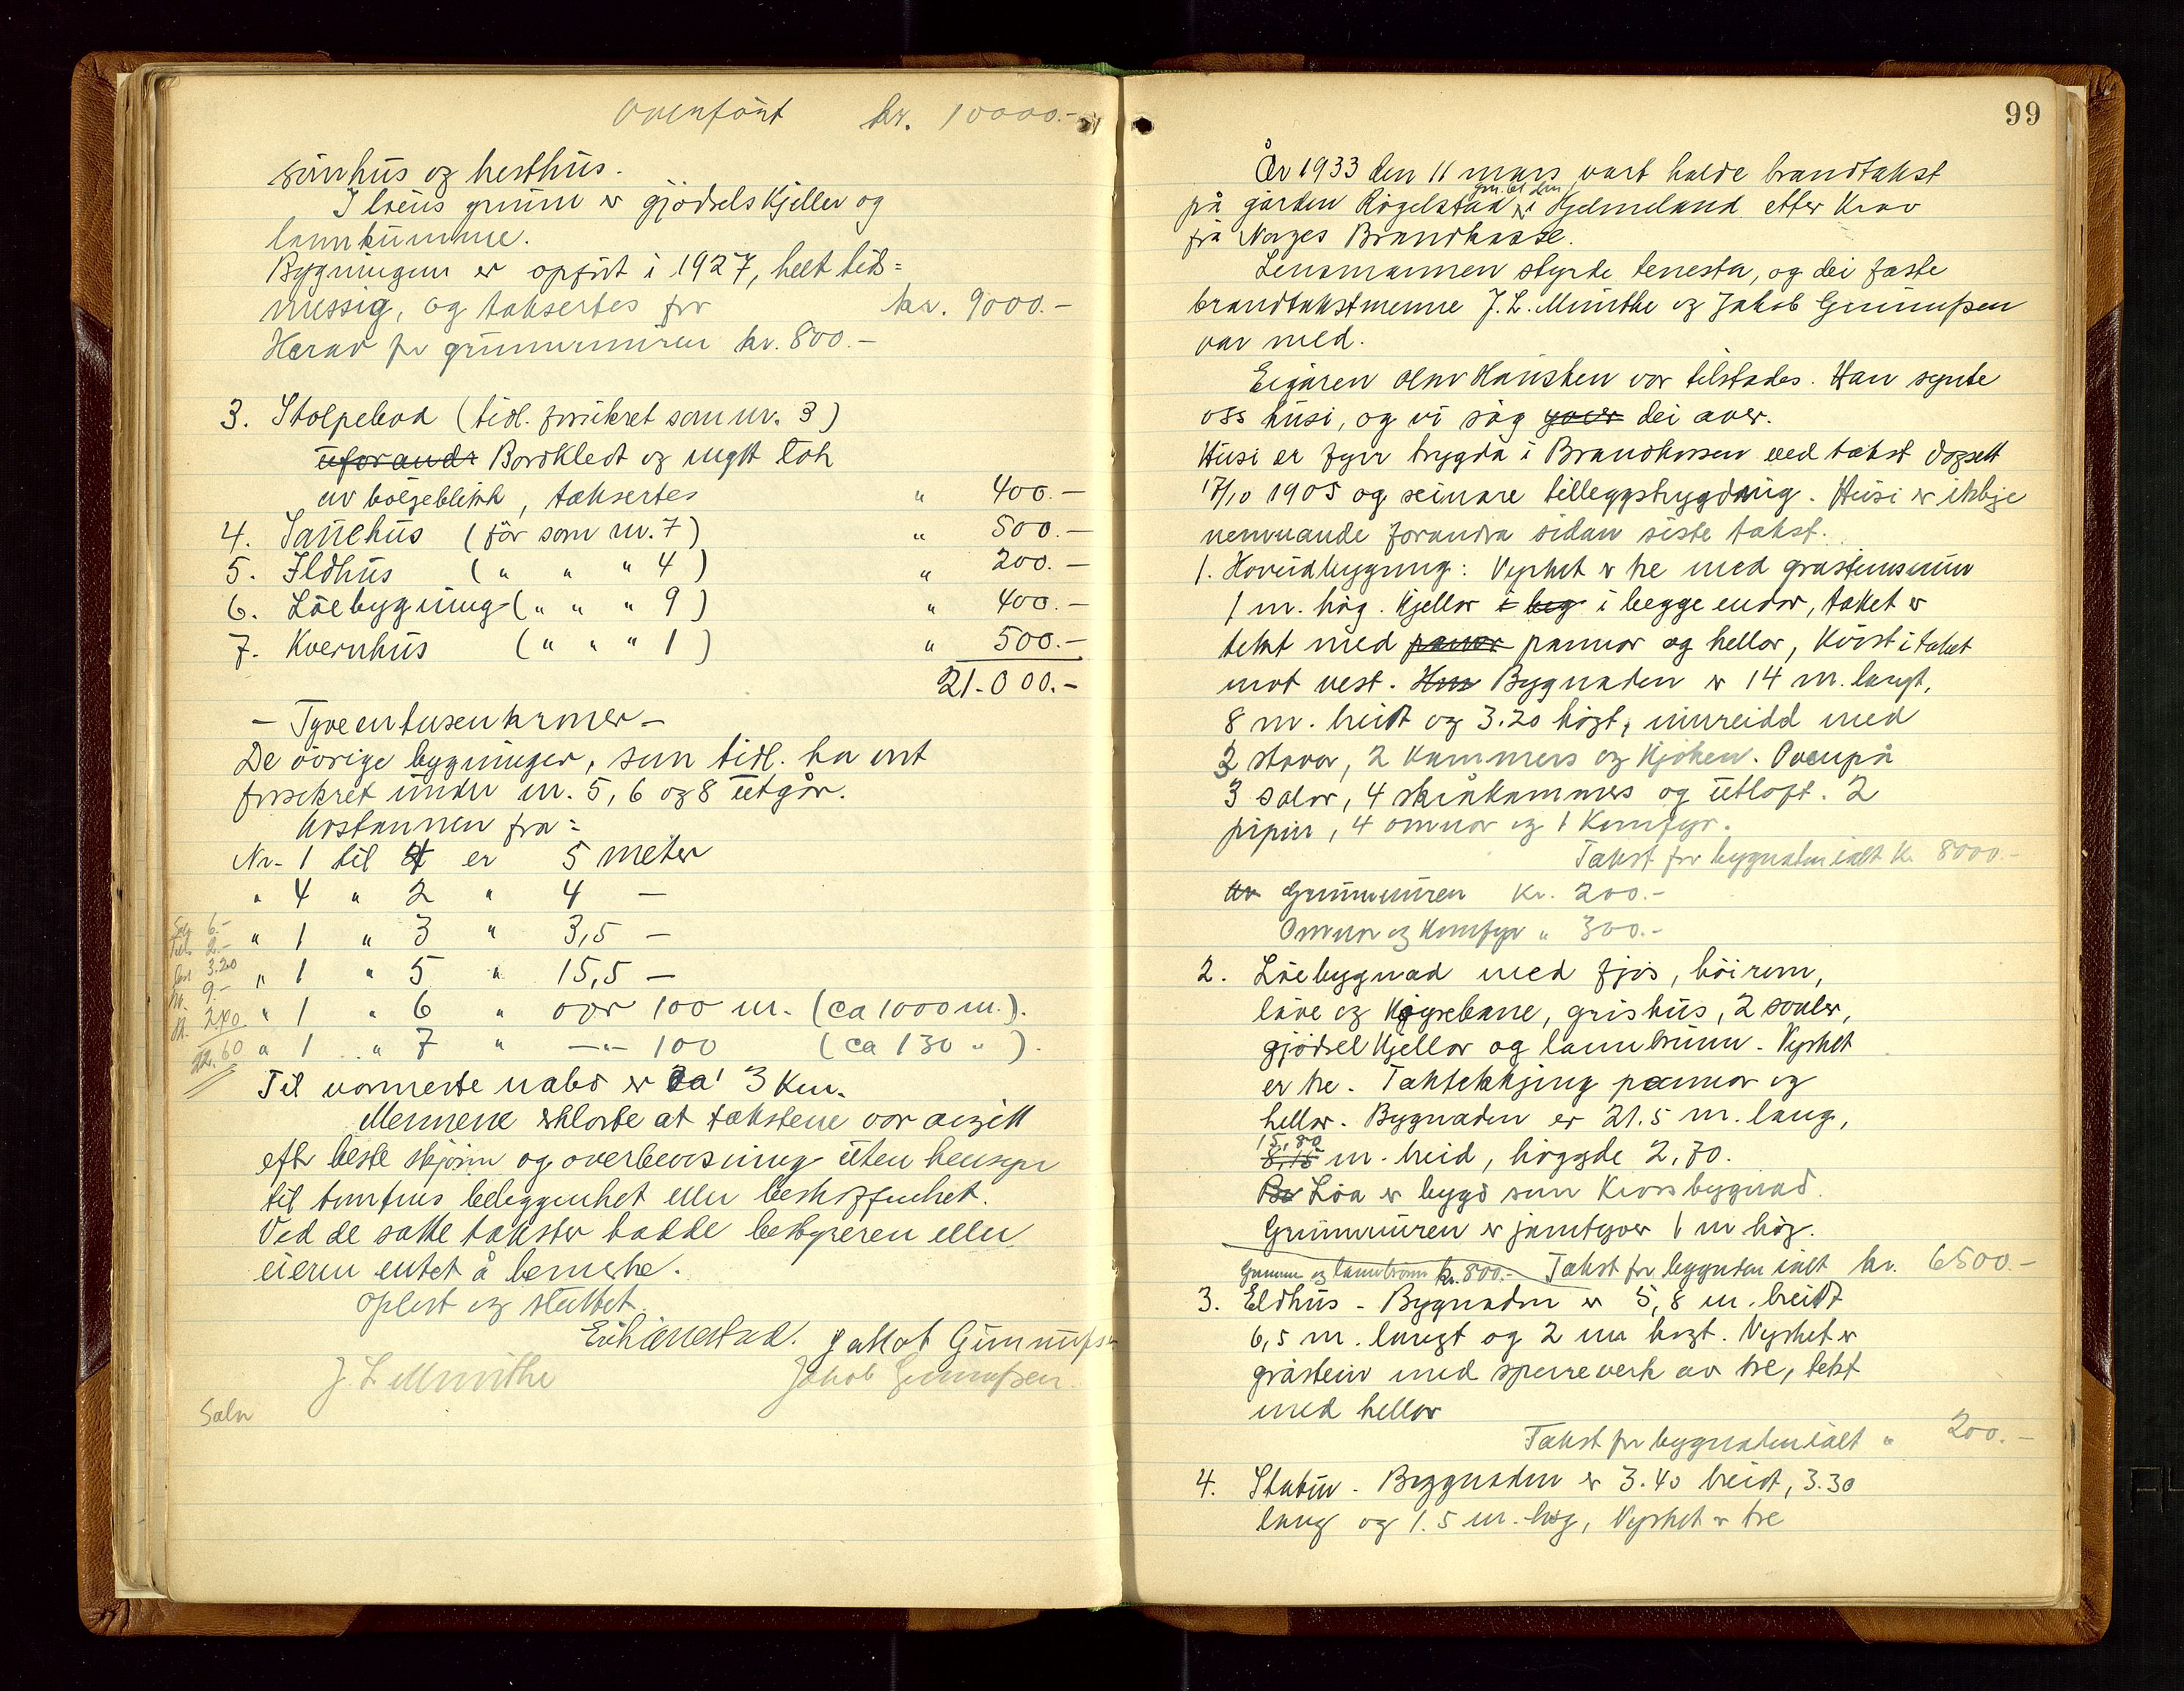 Ovenfört kr. 10000.-
svinhus og hesthus.
I löens grunn er gjödselskjeller og
lannkumme.
Bygningen er opfört i 1927, helt tids=
messig, og taksertes for kr. 9000.-
Herav for grunnmuren kr. 800.-
3. Stolpebod (tidl. forsikret som nr. 3)
uforandr Bordkledt og nytt tak
av bölgeblikk, taksertes " 400.-
4. Sauehus (för som nr. 7) " 500.-
5. Ildhus ( " " " 4 ) " 200.-
6. Löebygning ( " " " 9 ) " 400.-
7. Kvernhus ( " " " 1 ) " 500.-
21.000.-
- Tyveentusenkroner -
De övrige bygninger, som tidl. har vært
forsikret under nr. 5, 6 og 8 utgår.
Avstannen fra:
Nr. 1 til 4 er 5 meter
" 4 " 2 " 4 -
" 1 " 3 " 3,5 -
" 1 " 5 " 15,5 -
" 1 " 6 " over 100 m. (ca 1000 m.).
" 1 " 7 " -"- 100 (ca 130 " ).
6.-
2.-
3.20
9.-
2.40
22.60
Til nærmeste nabo er ca 3 km.
Mennene erklærte at takstene var avgitt
efter beste skjönn og overbevisning uten hensyn
til tomtens beliggenhet eller beskaffenhet.
Ved de satte takster hadde bestyreren eller
eieren intet å bemerke.
Oplest og sluttet.
Jakob Gunnufsen
J. L. Munthe Jakob Gunnufsen
99
År 1933 den 11 mars vart halde brandtakst
på garden Rögelstad i Hjelmeland etter krav
frå Norges Brandkasse.
Lensmannen styrde tenesta, og dei faste
brandtakstmenne J. L. Munthe og Jakob Gunnufsen
var med.
Eigaren Olav Hausken var tilstades. Han synte
oss husi, og vi såg yver dei over.
Husi er fyrr trygda i Brandkassen ved takst dagsett
17/10 1905 og seinare tilleggstrygdning. Husi er ikkje
nemnande forandra sidan siste takst.
1. Hovudbygning: Vyrket er tre med gråsteinsmur
1 m. høg. Kjellar i beg i begge endar, taket er
tekt med panner pannor og hellor, kvist i taket
mot vest. Hus Bygnaden er 14 m. langt,
8 m. breidt og 3.20 högt, innreidd med
2 stover, 2 kammers og kjöken. Ovenpå
3 salar, 4 skråkammers og utloft. 2
pipur, 4 omnar og 1 komfyr.
Takst for bygnaden ialt kr. 8000.-
Av Grunnmuren kr. 200.-
Omnar og komfyr " 300.-
2. Löebygnad med fjös, höirom,
låve og kjöyrebane, grishus, 2 svaler,
gjödselkjellar og lannbrunn. Vyrket
er tre. Taktekkjing pannor og
hellor. Bygnaden er 21.5 m. lang,
15,80
8,15 m. breid, höggde 2,70.
Be Löa er bygd som krossbygnad.
Grunnmuren er jamtyver 1 m hög.
Grunnm og lannbrunn kr. 800.- Takst for bygnaden ialt kr. 6500.-
3. Eldhus - Bygnaden er 5,8 m. breidt
6,5 m. langt og 2 m högt. Vyrket er
gråstein med sperreverk av tre, tekt
med hellor
Takst for bygnaden ialt " 200.-
4. Stabur. Bygnaden er 3.40 breidt, 3.30
lang og 1.5 m. høg, Vyrket er tre